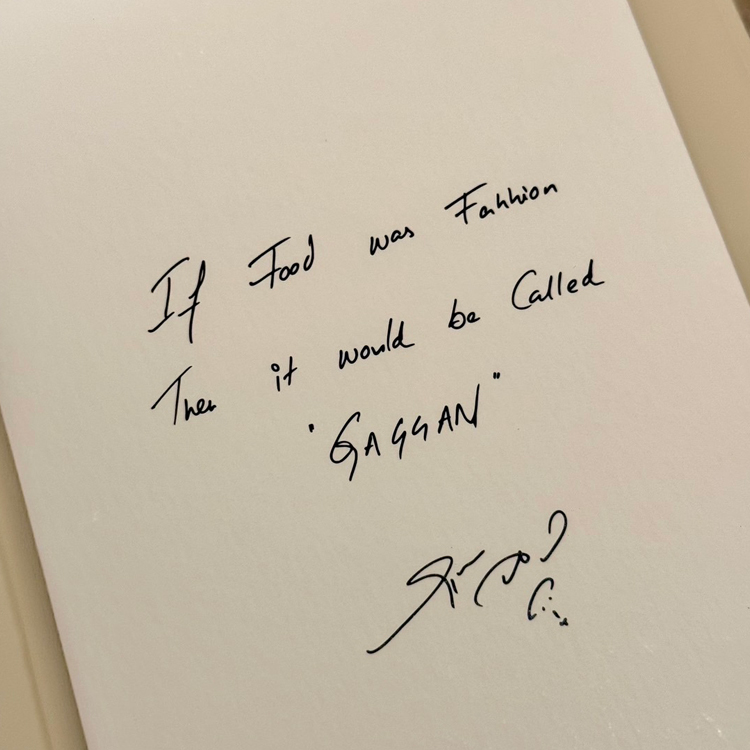 If Food was Fahhion
Then it would be Called
"GAGGAN"